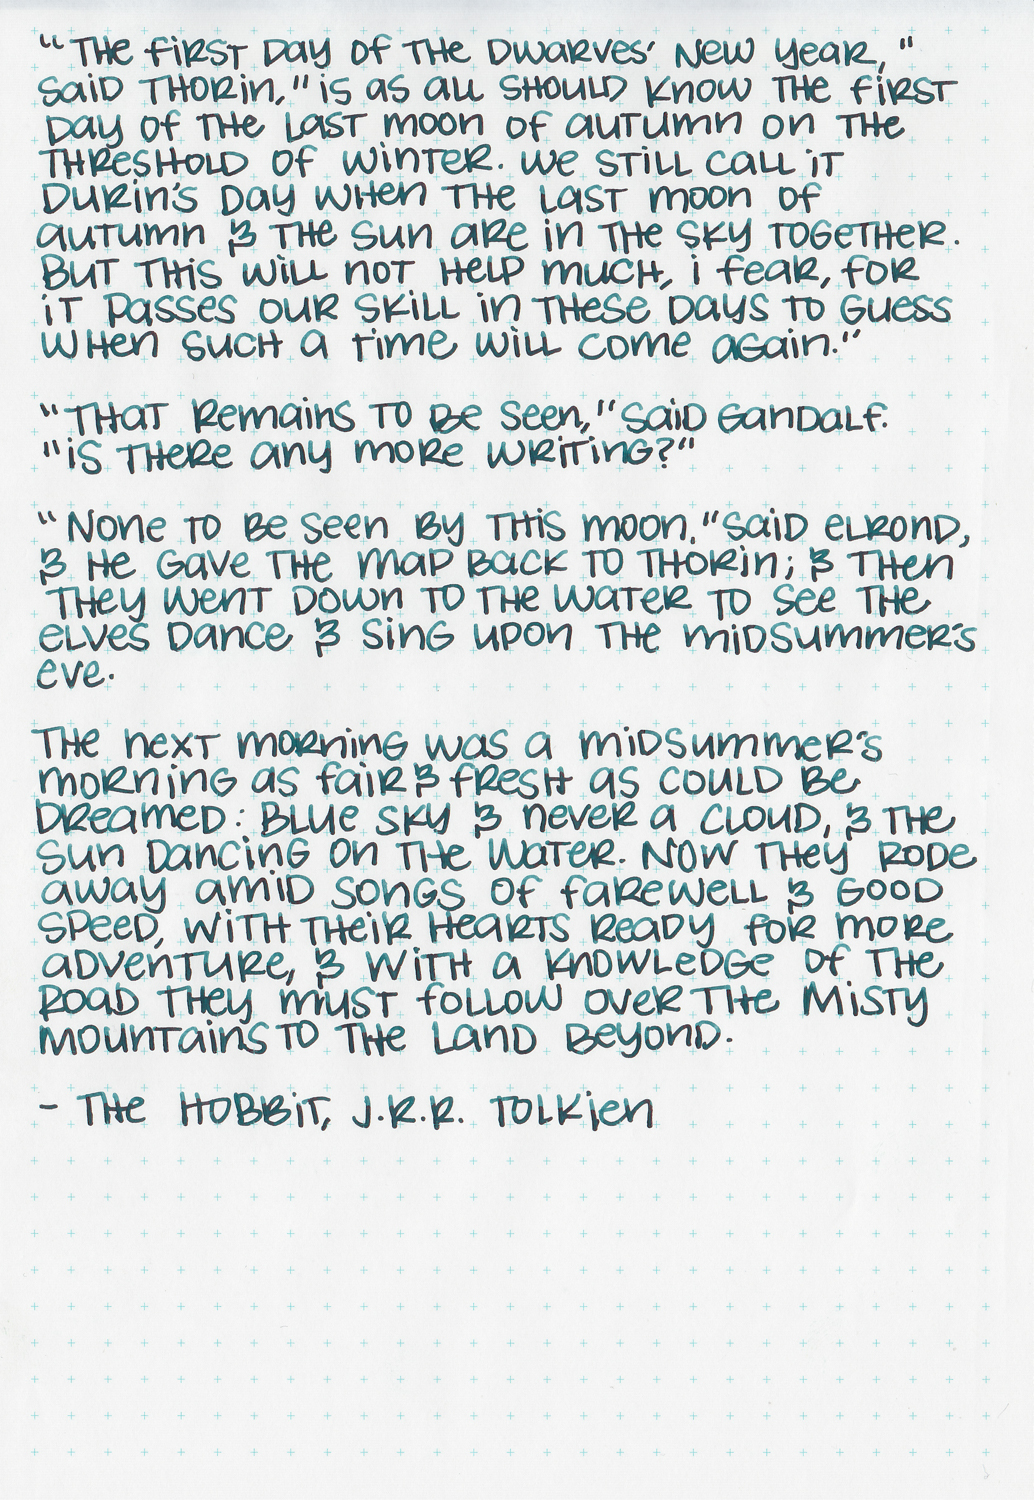 "The first day of the Dwarves' New Year,"
said Thorin, "is as all should know the first
day of the last moon of autumn on the
threshold of winter. We still call it
Durin's Day when the last moon of
autumn & the sun are in the sky together.
But this will not help much, I fear, for
it passes our skill in these days to guess
when such a time will come again."
"That remains to be seen," said Gandalf.
"Is there any more writing?"
"None to be seen by this moon," said Elrond,
& he gave the map back to Thorin; & then
they went down to the water to see the
elves dance & sing upon the midsummer's
eve.
The next morning was a midsummer's
morning as fair & fresh as could be
dreamed: blue sky & never a cloud, & the
sun dancing on the water. Now they rode
away amid songs of farewell & good
speed, with their hearts ready for more
adventure, & with a knowledge of the
road they must follow over the Misty
Mountains to the land beyond.
- The Hobbit, J.R.R. Tolkien